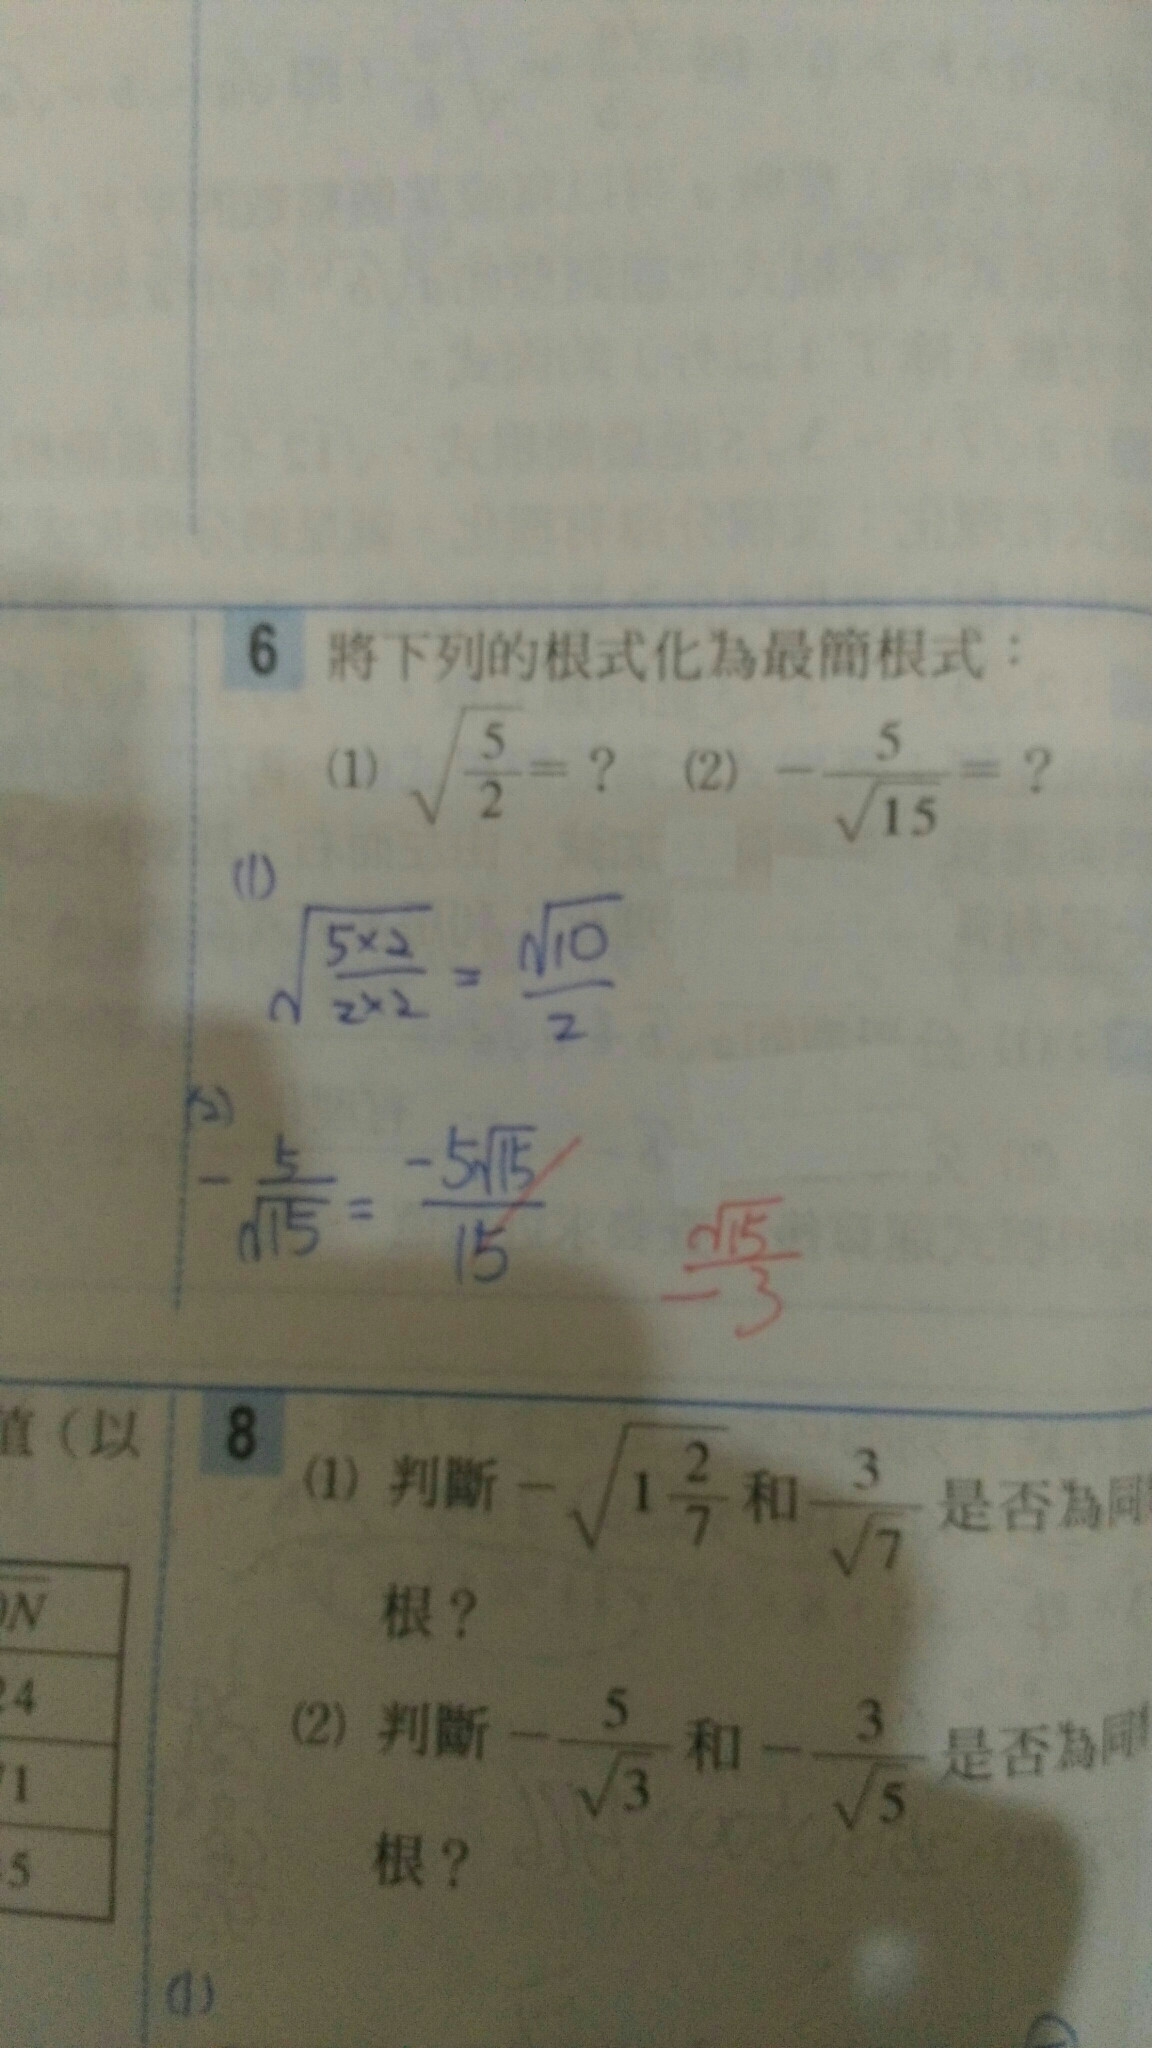 6 將下列的根式化為最簡根式：
(1) √(5/2) = ? (2) －5/√15 = ?
(1)
√(5×2/2×2) = √10/2
(2)
－5/√15 = －5√15/15
－√15/3
值（以
8 (1) 判斷－√(1 2/7) 和 3/√7 是否為同
根？
N
24
71
5
(2) 判斷－5/√3 和－3/√5 是否為同
根？
(1)